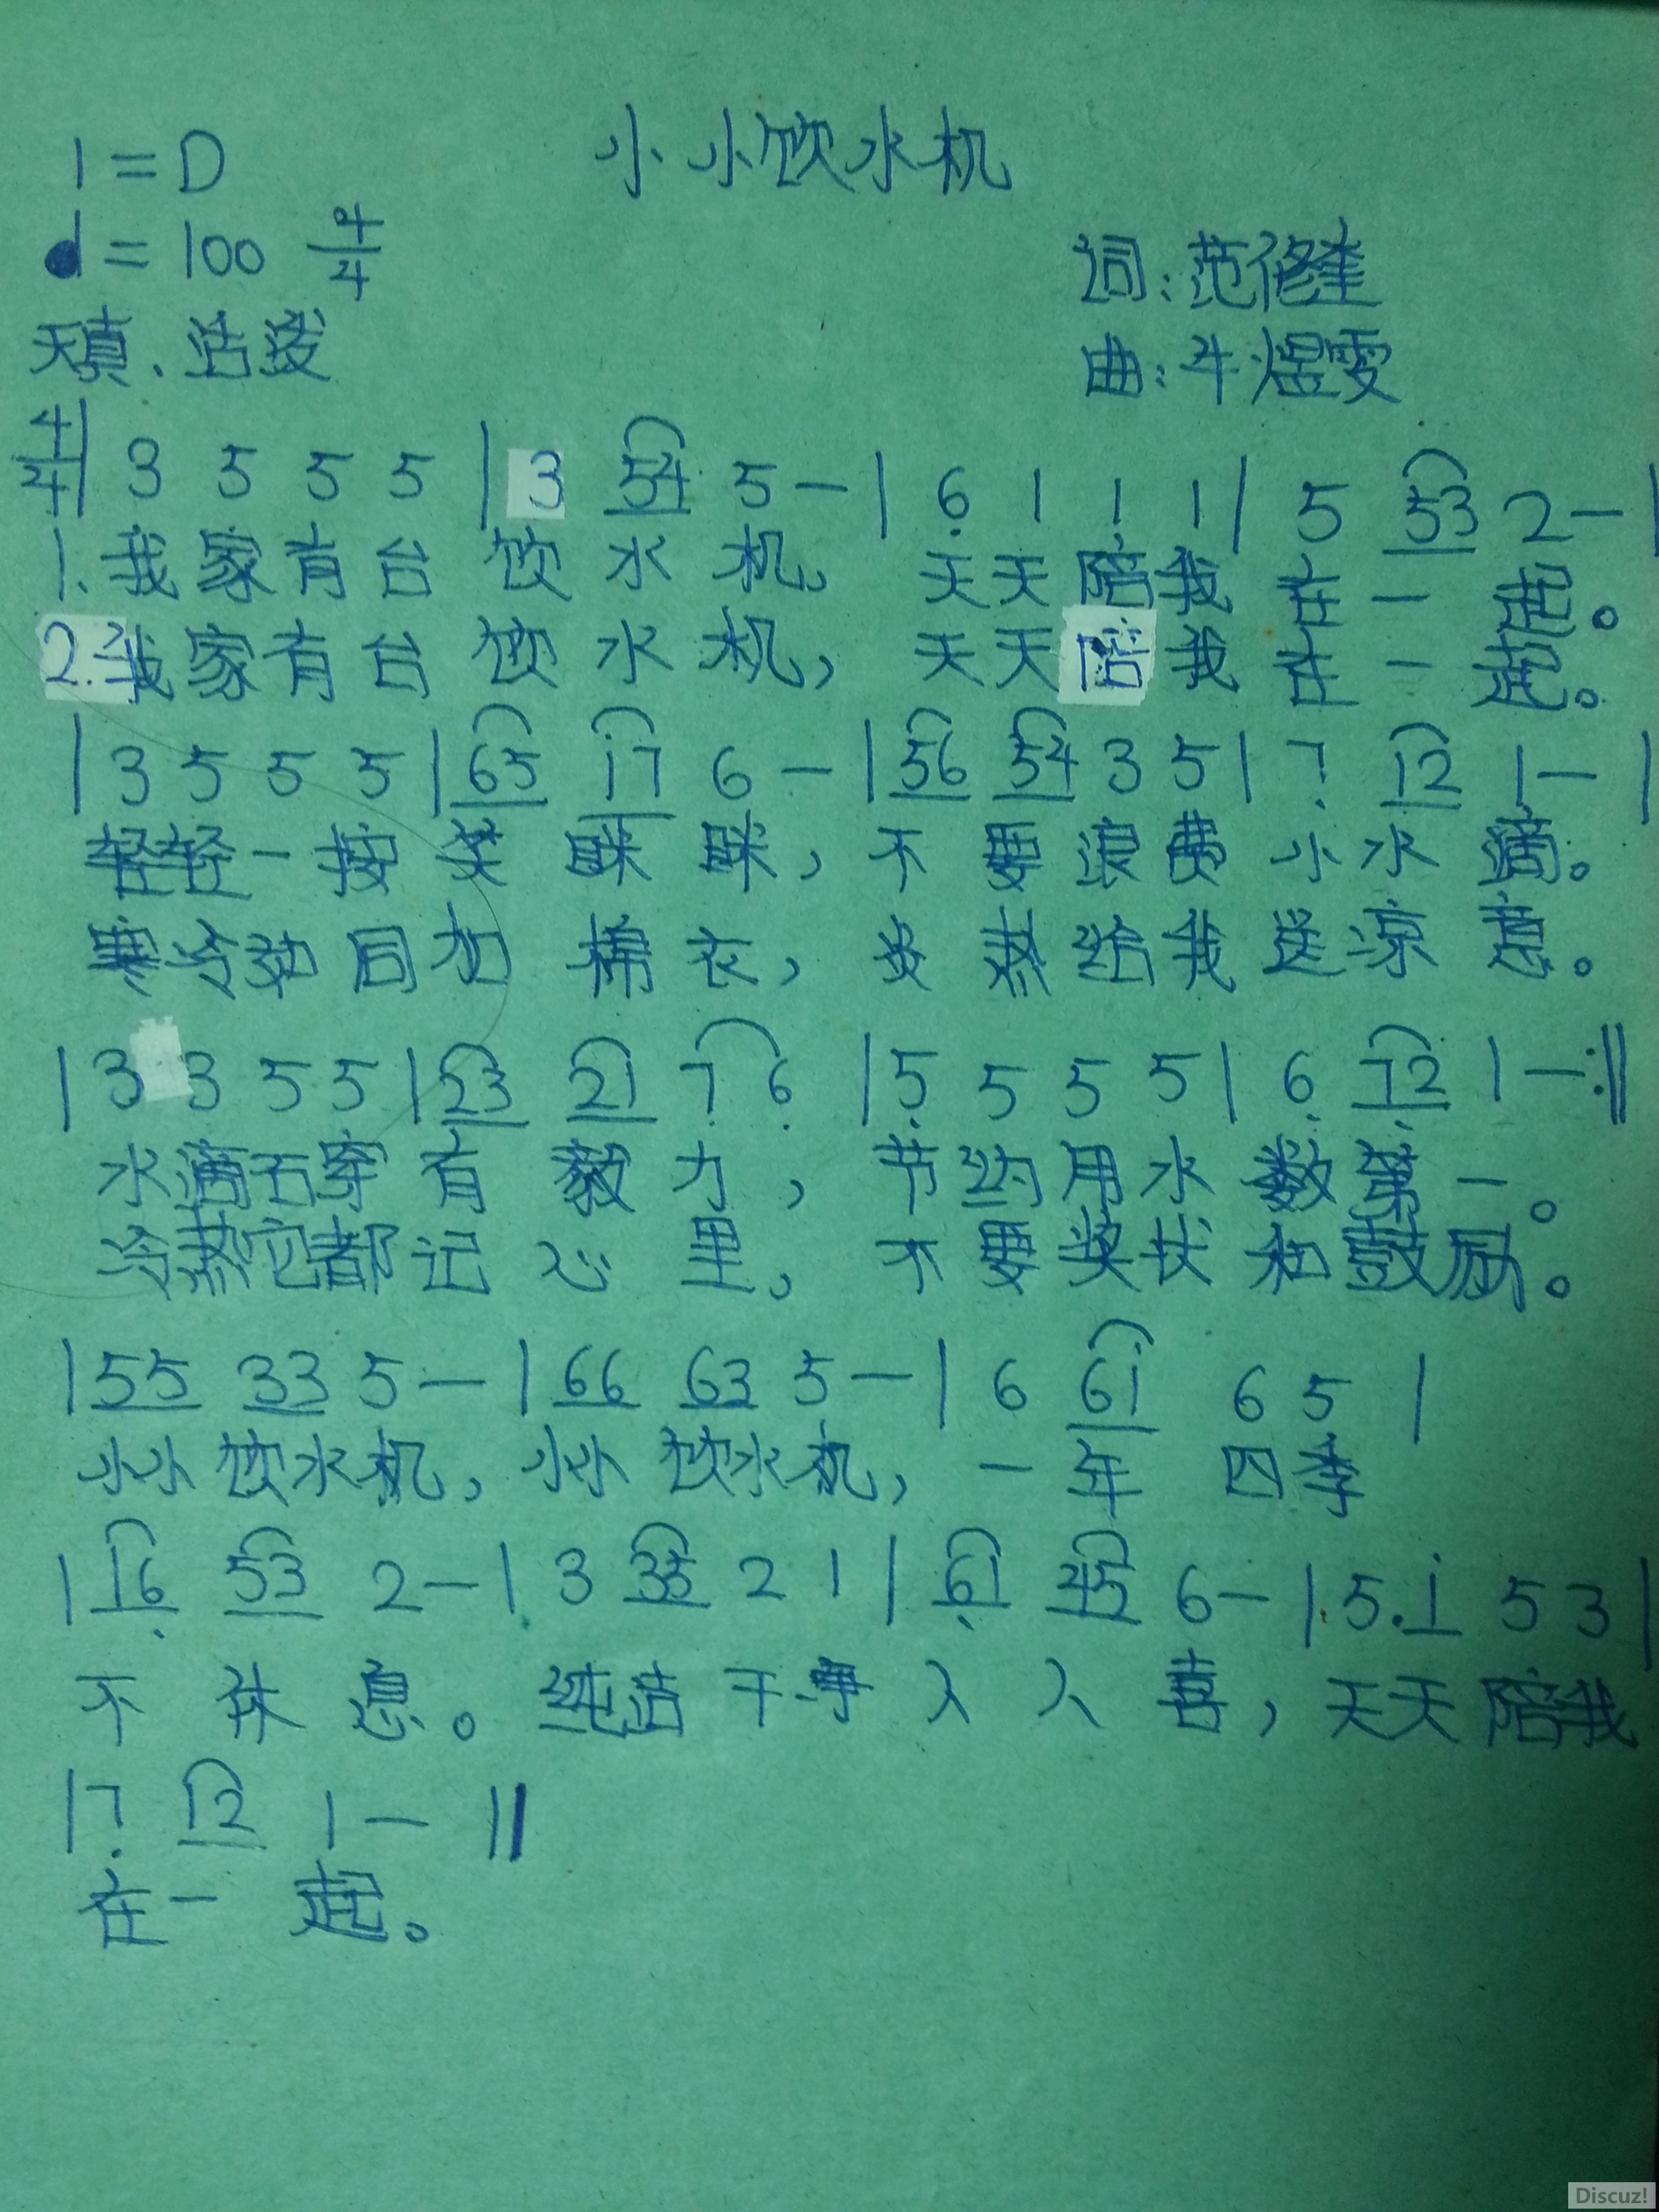 小小饮水机
1=D
♩=100 4/4
词:范修奎
天真、活泼
曲:牛煜雯
4/4| 3 5 5 5 | 3 54 5 — | 6̣ 1 1 1 | 5 53 2 — |
1.我家有台饮水机, 天天陪我在一起。
2.我家有台饮水机, 天天陪我在一起。
| 3 5 5 5 | 65 i7 6 — | 56 54 3 5 | 7̣ 12 1 — |
轻轻一按笑眯眯, 不要浪费小水滴。
寒冷劝同加棉衣, 炎热给我送凉意。
| 3 3 5 5 | 23 21 7̣ 6̣ | 5̣ 5 5 5 | 6̣ 7̣2 1 — :‖
水滴石穿有毅力, 节约用水数第一。
冷热它都记心里, 不要奖状和鼓励。
| 55 33 5 — | 66 63 5 — | 6 6i 6 5 |
小小饮水机, 小小饮水机, 一年四季
| 16̣ 53 2 — | 3 35 2 1 | 6̣1 45 6 — | 5. i 5 3 |
不休息。纯洁干净人人喜, 天天陪我
| 7̣ 12 1 — ‖
在一起。
Discuz!